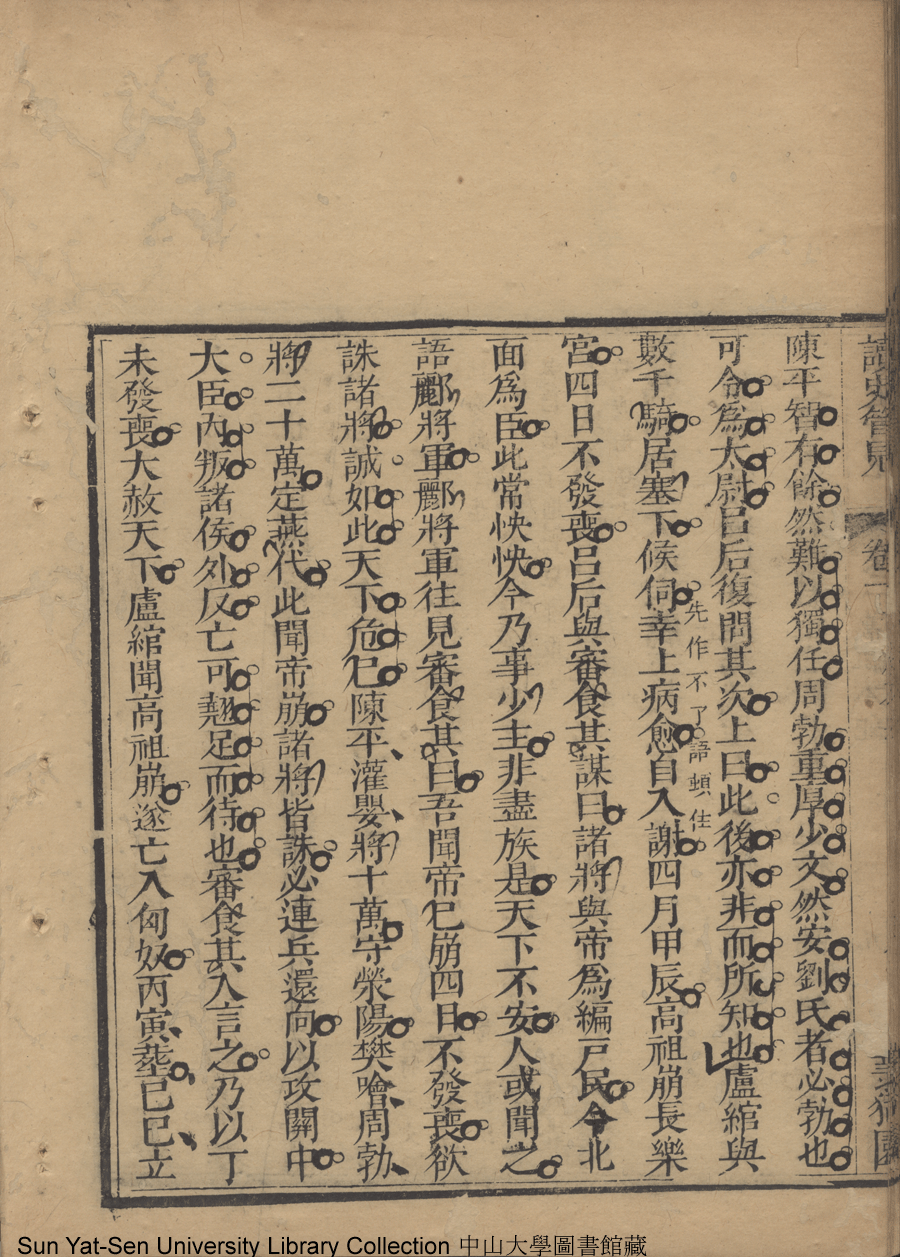 讀史管見 卷一
陳平智有餘然難以獨任周勃重厚少文然安劉氏者必勃也
可令爲太尉呂后復問其次上曰此後亦非而所知也盧綰與
數千騎居塞下候伺幸上病愈自入謝四月甲辰高祖崩長樂
先作不了語頓住
宮四日不發喪呂后與審食其謀曰諸將與帝爲編戸民今北
面爲臣此常怏怏今乃事少主非盡族是天下不安人或聞之
語酈將軍酈將軍往見審食其曰吾聞帝已崩四日不發喪欲
誅諸將誠如此天下危已陳平灌嬰將十萬守滎陽樊噲周勃
將二十萬定燕代此聞帝崩諸將皆誅必連兵還向以攻關中
大臣內叛諸侯外反亡可翹足而待也審食其入言之乃以丁
未發喪大赦天下盧綰聞高祖崩遂亡入匈奴丙寅葬已巳立
Sun Yat-Sen University Library Collection 中山大學圖書館藏